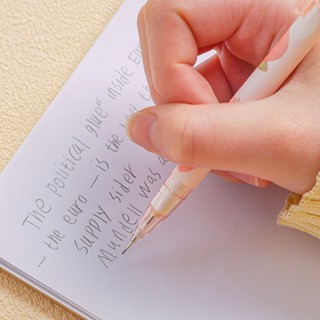 The political glue" inside Eu
- the euro — is the best
supply sider
Mundell was a